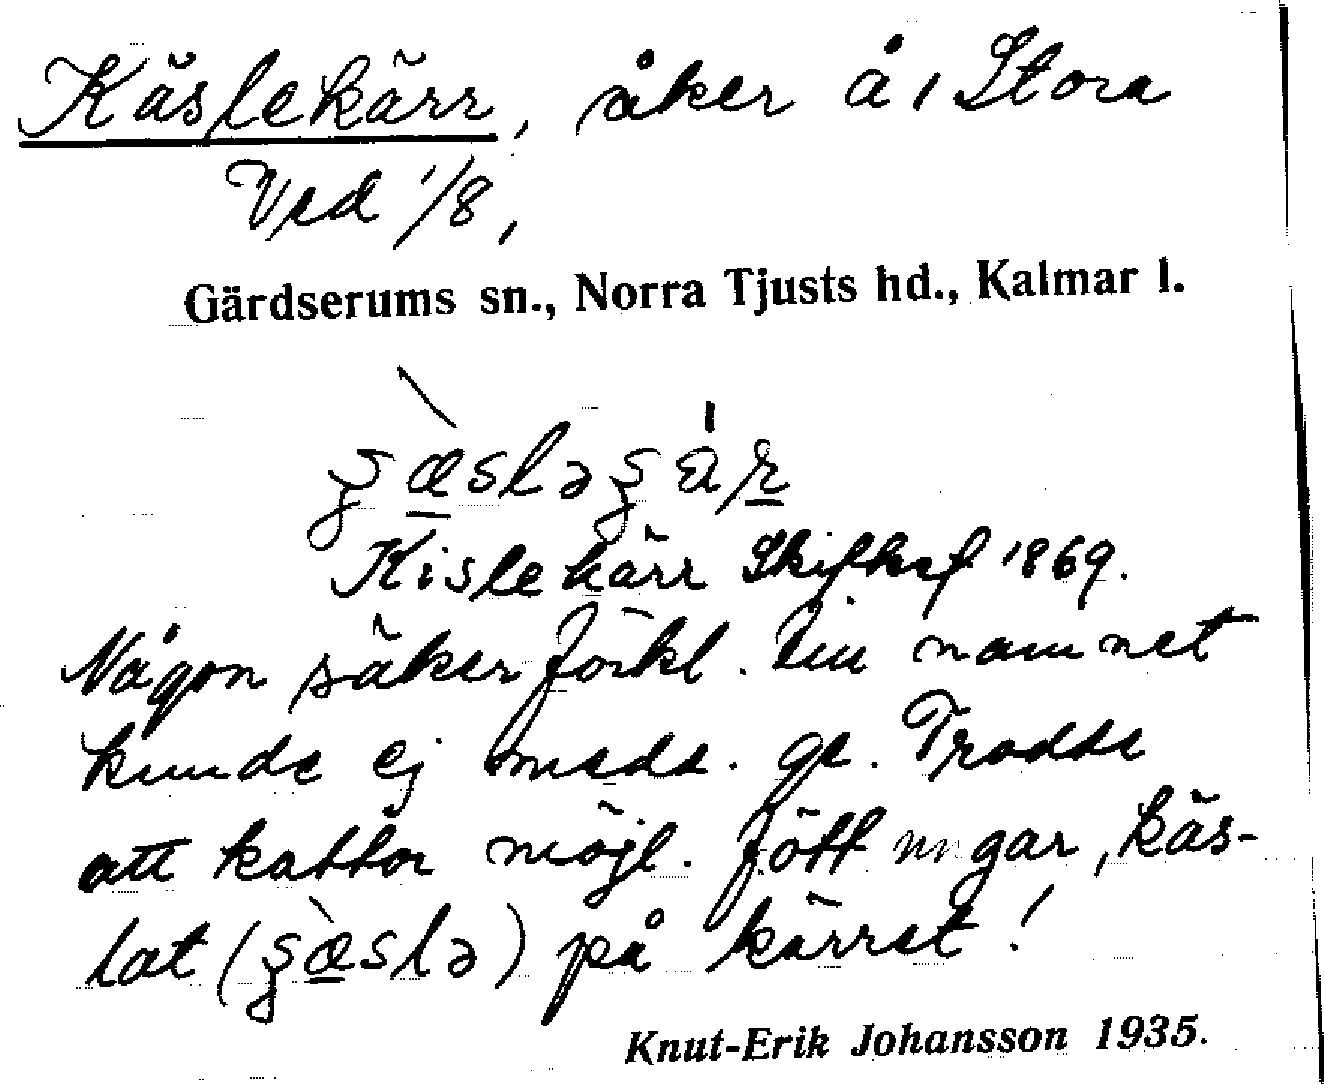 Käslekärr, åker å, Stora
Ved 1/8,
Gärdserums sn., Norra Tjusts hd., Kalmar l.
Kislekärr Skifteskf 1869.
Någon säker förkl. till namnet
kunde ej medd. ge. Trodde
att kattor möjl. fött ungar, käs-
lat (ʂæslə) på kärret!
Knut-Erik Johansson 1935.